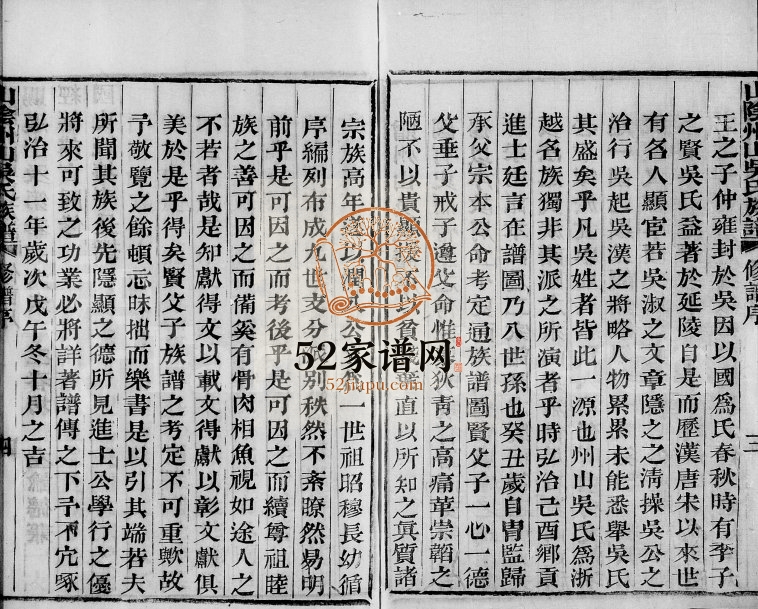 山陰州山吳氏族譜 修譜序 三
王之子仲雍封於吳因以國爲氏春秋時有季子
之賢吳氏益著於延陵自是而歷漢唐宋以來世
有名人顯宦若吳淑之文章隱之之淸操吳公之
治行吳起吳漢之將略人物累累未能悉舉吳氏
其盛矣乎凡吳姓者皆此一源也州山吳氏爲浙
越名族獨非其派之所演者乎時弘治己酉鄉貢
進士廷言在譜圖乃八世孫也癸丑歲自胄監歸
承父宗本公命考定通族譜圖賢父子一心一德
父垂子戒子遵父命惟 狄靑之高痛革崇韜之
陋不以貴顯援不以貧 直以所知之眞質諸
宗族高年 以 公 一世祖昭穆長幼循
序編列布成九世支分派別秩然不紊瞭然易明
前乎是可因之而考後乎是可因之而續尊祖睦
族之善可因之而備奚有骨肉相魚視如途人之
不若者哉是知獻得文以載文得獻以彰文獻俱
美於是乎得矣賢父子族譜之考定不可重歟故
予敬覽之餘頓忘昧拙而樂書是以引其端若夫
所聞其族後先隱顯之德所見進士公學行之優
將來可致之功業必將詳著譜傳之下予不宂啄
弘治十一年歲次戊午冬十月之吉
山陰州山吳氏族譜 修譜序 四
52家谱网
52jiapu.com